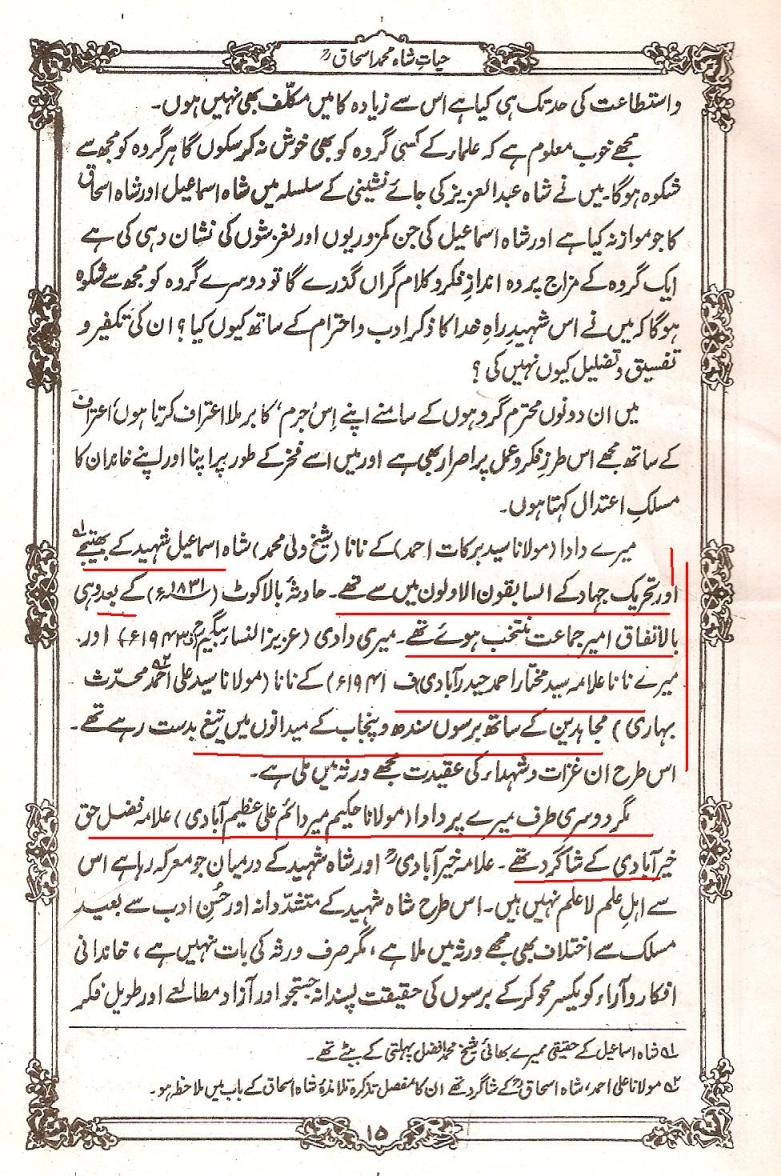 حیاتِ شاہ محمد اسحاقؒ
واستطاعت کی حد تک ہی کیا ہے اس سے زیادہ کا میں مکلّف بھی نہیں ہوں۔
مجھے خوب معلوم ہے کہ علماء کے کسی گروہ کو بھی خوش نہ کر سکوں گا ہر گروہ کو مجھ سے
شکوہ ہوگا۔ میں نے شاہ عبدالعزیز کی جائے نشینی کے سلسلہ میں شاہ اسماعیل اور شاہ اسحاق
کا جو موازنہ کیا ہے اور شاہ اسماعیل کی جن کمزوریوں اور لغزشوں کی نشان دہی کی ہے
ایک گروہ کے مزاج پر وہ اندازِ فکر و کلام گراں گذرے گا تو دوسرے گروہ کو مجھ سے شکوہ
ہوگا کہ میں نے اس شہیدِ راہِ خدا کا ذکر ادب و احترام کے ساتھ کیوں کیا؟ ان کی تکفیر و
تفسیق و تضلیل کیوں نہیں کی؟
میں ان دونوں محترم گروہوں کے سامنے اپنے اِس ’جرم‘ کا برملا اعتراف کرتا ہوں، اعتراف
کے ساتھ مجھے اس طرزِ فکر و عمل پر اصرار بھی ہے اور میں اسے فخر کے طور پر اپنا اور اپنے خاندان کا
مسلکِ اعتدال کہتا ہوں۔
میرے دادا (مولانا سید برکات احمد) کے نانا (شیخ ولی محمد) شاہ اسماعیل شہید کے بھتیجے ؂۱
اور تحریک جہاد کے السابقون الاولون میں سے تھے۔ حادثۂ بالاکوٹ (۱۸۳۱ء) کے بعد وہی
بالاتفاق امیر جماعت منتخب ہوئے تھے۔ میری دادی (عزیز النساء بیگم ۱۹۴۳ء) اور
میرے نانا علامہ سید مختار احمد حیدرآبادی ف ۱۹۴۱ء) کے نانا (مولانا سید علی احمد محدّث ؂۲
بہاری) مجاہدین کے ساتھ برسوں سندھ و پنجاب کے میدانوں میں تیغ بدست رہے تھے۔
اس طرح ان غزات و شہداء کی عقیدت مجھے ورثہ میں ملی ہے۔
مگر دوسری طرف میرے پر دادا (مولانا حکیم میر دائم علی عظیم آبادی) علامہ فضل حق
خیرآبادی کے شاگرد تھے۔ علامہ خیرآبادیؒ اور شاہ شہید کے درمیان جو معرکہ رہا ہے اس
سے اہلِ علم لا علم نہیں ہیں۔ اس طرح شاہ شہید کے متشدّدانہ اور حُسنِ ادب سے بعید
مسلک سے اختلاف بھی مجھے ورثہ میں ملا ہے، مگر صرف ورثہ کی بات نہیں ہے، خاندانی
افکار و آراء کو یکسر محو کر کے برسوں کی حقیقت پسندانہ جستجو اور آزاد مطالعے اور طویل فکر
؂۱ شاہ اسماعیل کے حقیقی ممیرے بھائی شیخ محمد افضل پھلتی کے بیٹے تھے۔
؂۲ مولانا علی احمد، شاہ اسحاقؒ کے شاگرد تھے ان کا مفصل تذکرہ تلامذۂ شاہ اسحاق کے باب میں ملاحظہ ہو۔
۱۵